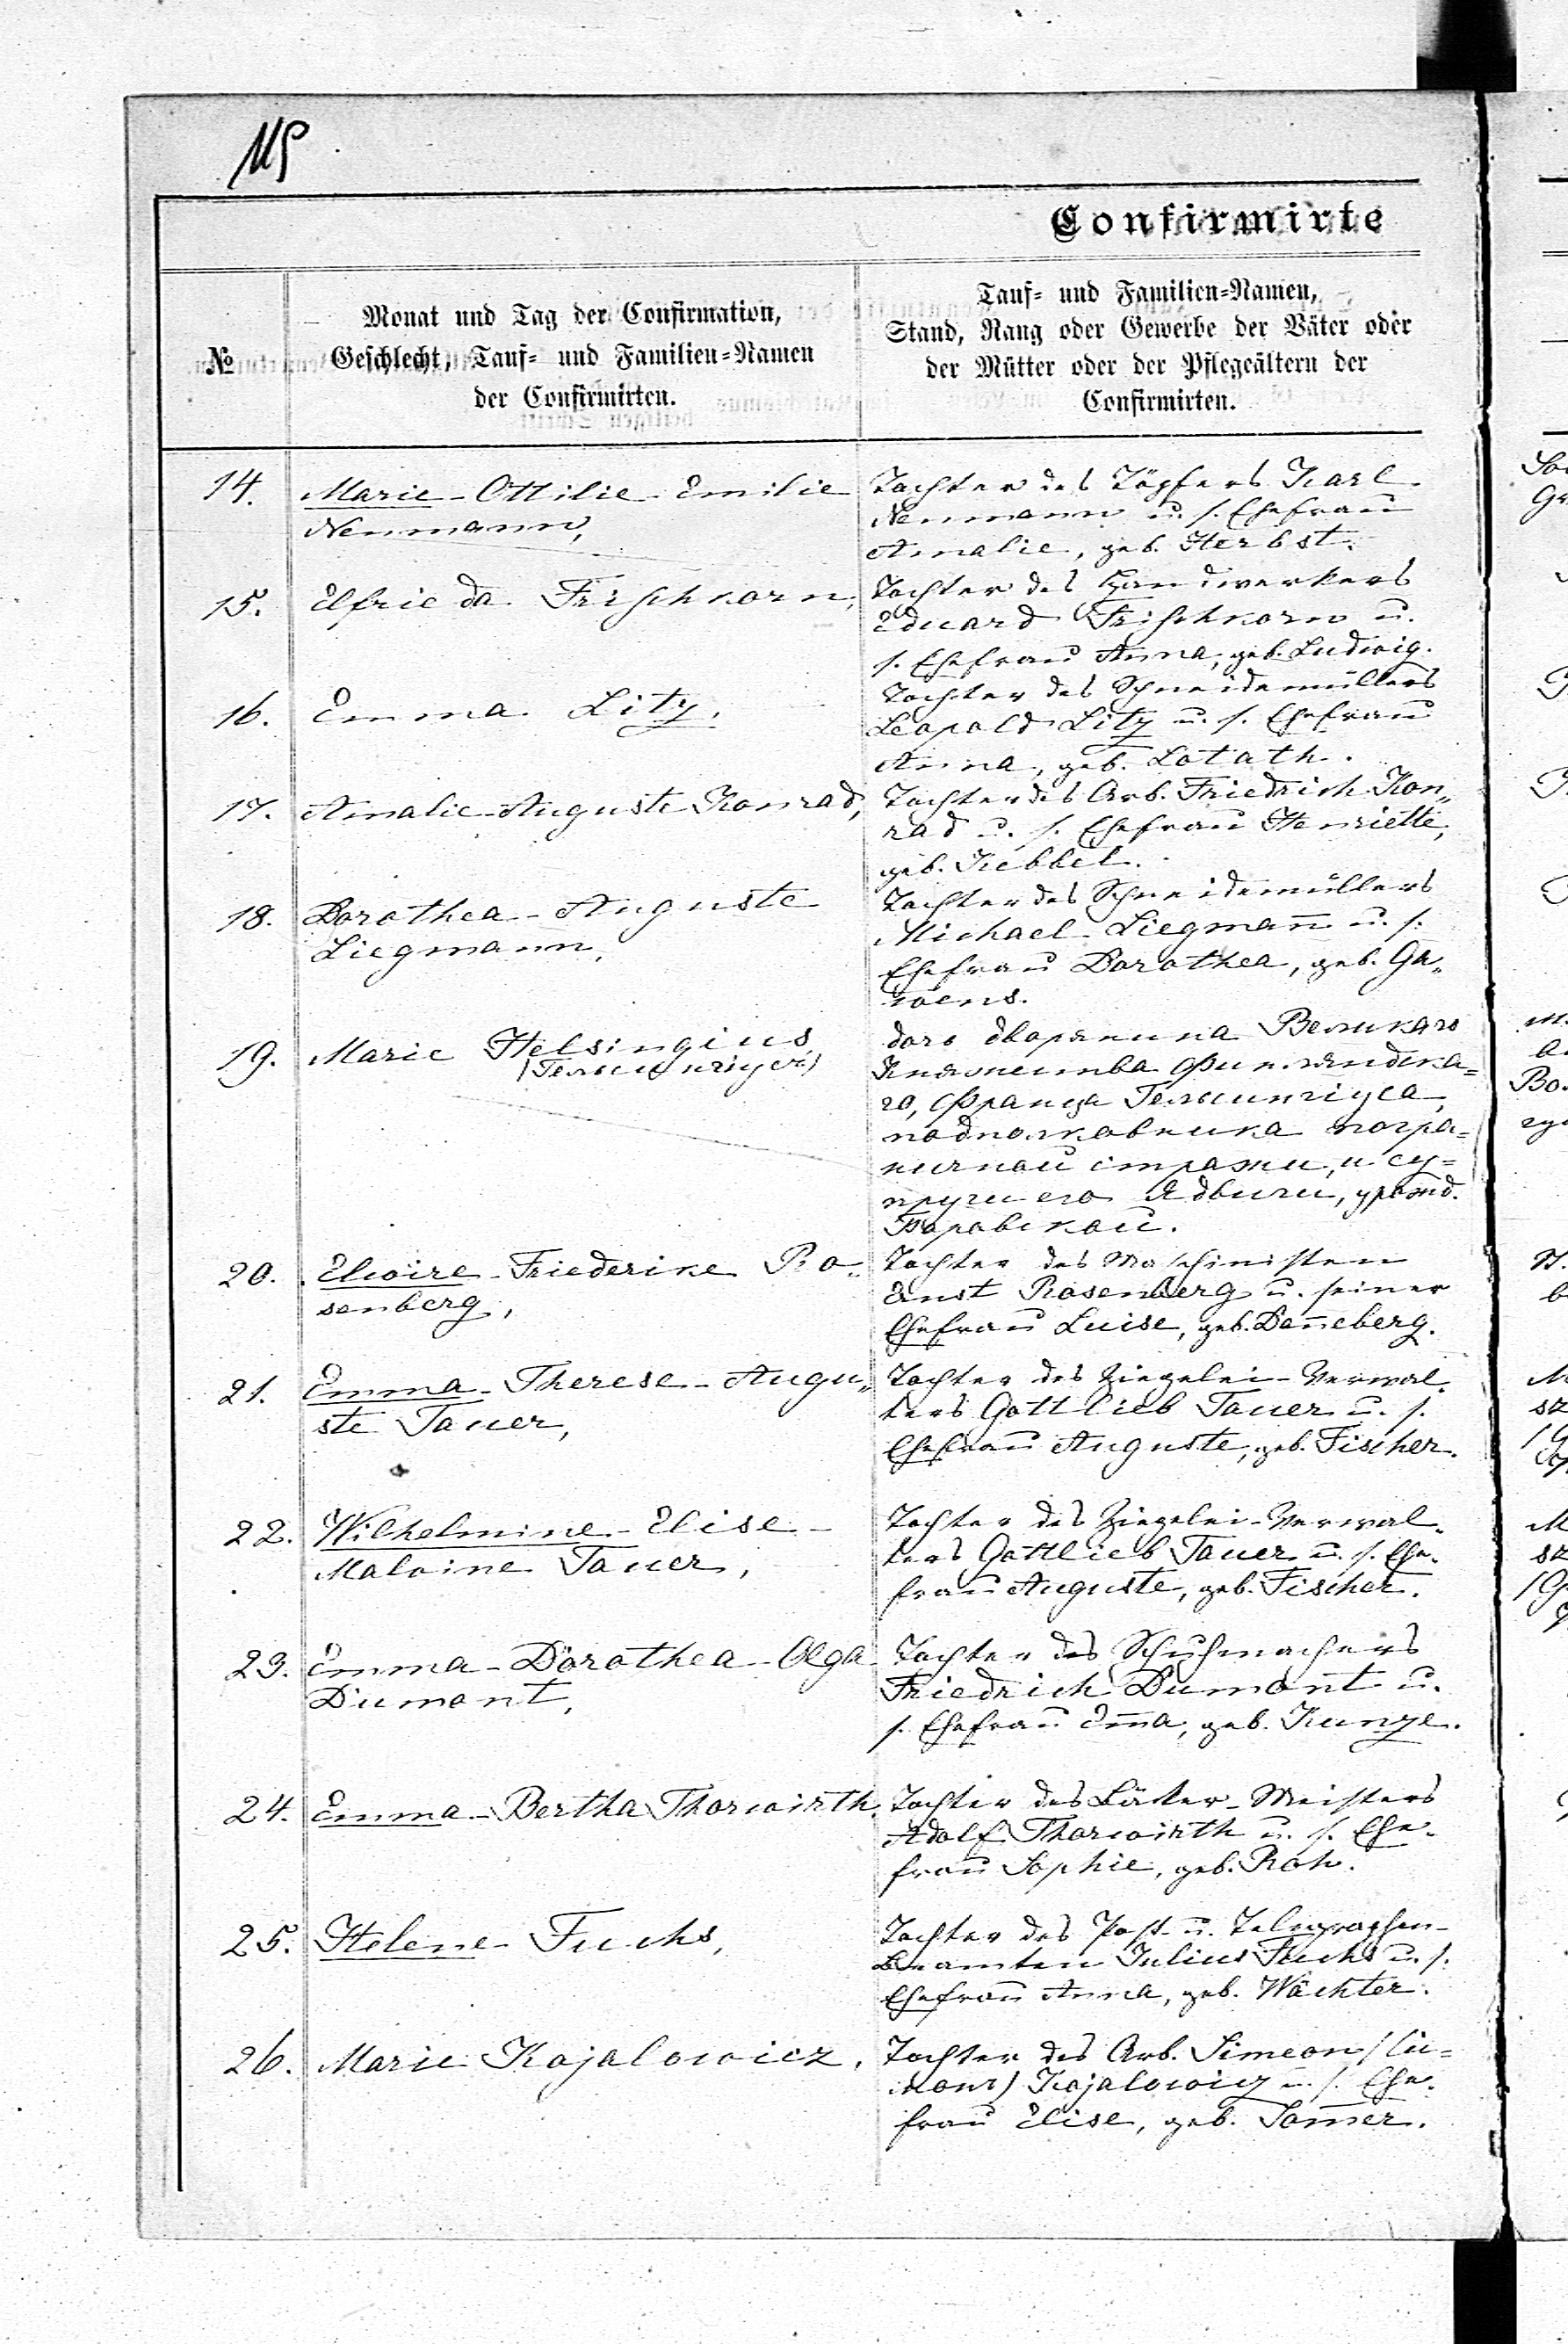 115
Confirmirte
№
Monat und Tag der Confirmation,
Geschlecht, Tauf- und Familien-Namen
der Confirmirten.
Tauf- und Familien-Namen,
Stand, Rang oder Gewerbe der Väter oder
der Mütter oder der Pflegeältern der
Confirmirten.
14.
Marie-Ottilie-Emilie
Neumann,
Tochter des Töpfers Karl
Neumann u. s. Ehefrau
Amalie, geb. Herbst.
15.
Elfrieda Frischkorn,
Tochter des Handwerkers
Eduard Frischkorn u.
s. Ehefrau Anna, geb. Ludwig.
16.
Emma Litz,
Tochter des Schneidemüllers
Leopold Litz u. s. Ehefrau
Anna, geb. Lotath.
17.
Amalie-Auguste Konrad,
Tochter des Arb. Friedrich Kon„
rad u. s. Ehefrau Henriette,
geb. Kebbel.
18.
Dorothea-Auguste
Liegmann,
Tochter des Schneidemüllers
Michael Liegmañ u. s.
Ehefrau Dorothea, geb. Ga„
wens.
19.
Marie Helsingius
(Гельсингiусъ)
дочь дворянина Великаго
Княжества Финляндска=
го, Франца Гельсингiуса,
подполковника погра=
ничной стражи, и су=
пруги его Ядвиги, урожд.
Боровской.
20.
Elwire-Friederike Ro„
senberg,
Tochter des Maschinisten
Ernst Rosenberg u. seiner
Ehefrau Luise, geb. Deñeberg.
21.
Emma-Therese-Augu„
ste Tauer,
Tochter des Ziegelei-Verwal„
ters Gottlieb Tauer u. s.
Ehefrau Auguste, geb. Fischer.
22.
Wilhelmine-Elise-
Malwine Tauer,
Tochter des Ziegelei-Verwal„
ters Gottlieb Tauer u. s. Ehe„
frau Auguste, geb. Fischer.
23.
Emma-Dorothea-Olga
Dumont,
Tochter des Schuhmachers
Friedrich Dumont u.
s. Ehefrau Em̃a, geb. Kunze.
24.
Emma-Bertha Thorwirth,
Tochter des Bäcker-Meisters
Adolf Thorwirth u. s. Ehe„
frau Sophie, geb. Roh.
25.
Helene Fuchs,
Tochter des Post- u. Telegraphen-
Beamten Julius Fuchs u. s.
Ehefrau Anna, geb. Wächter.
26.
Marie Kojalowicz,
Tochter des Arb. Simeon
Kojalowicz u. s. Ehe„
frau Elise, geb. Som̃er.